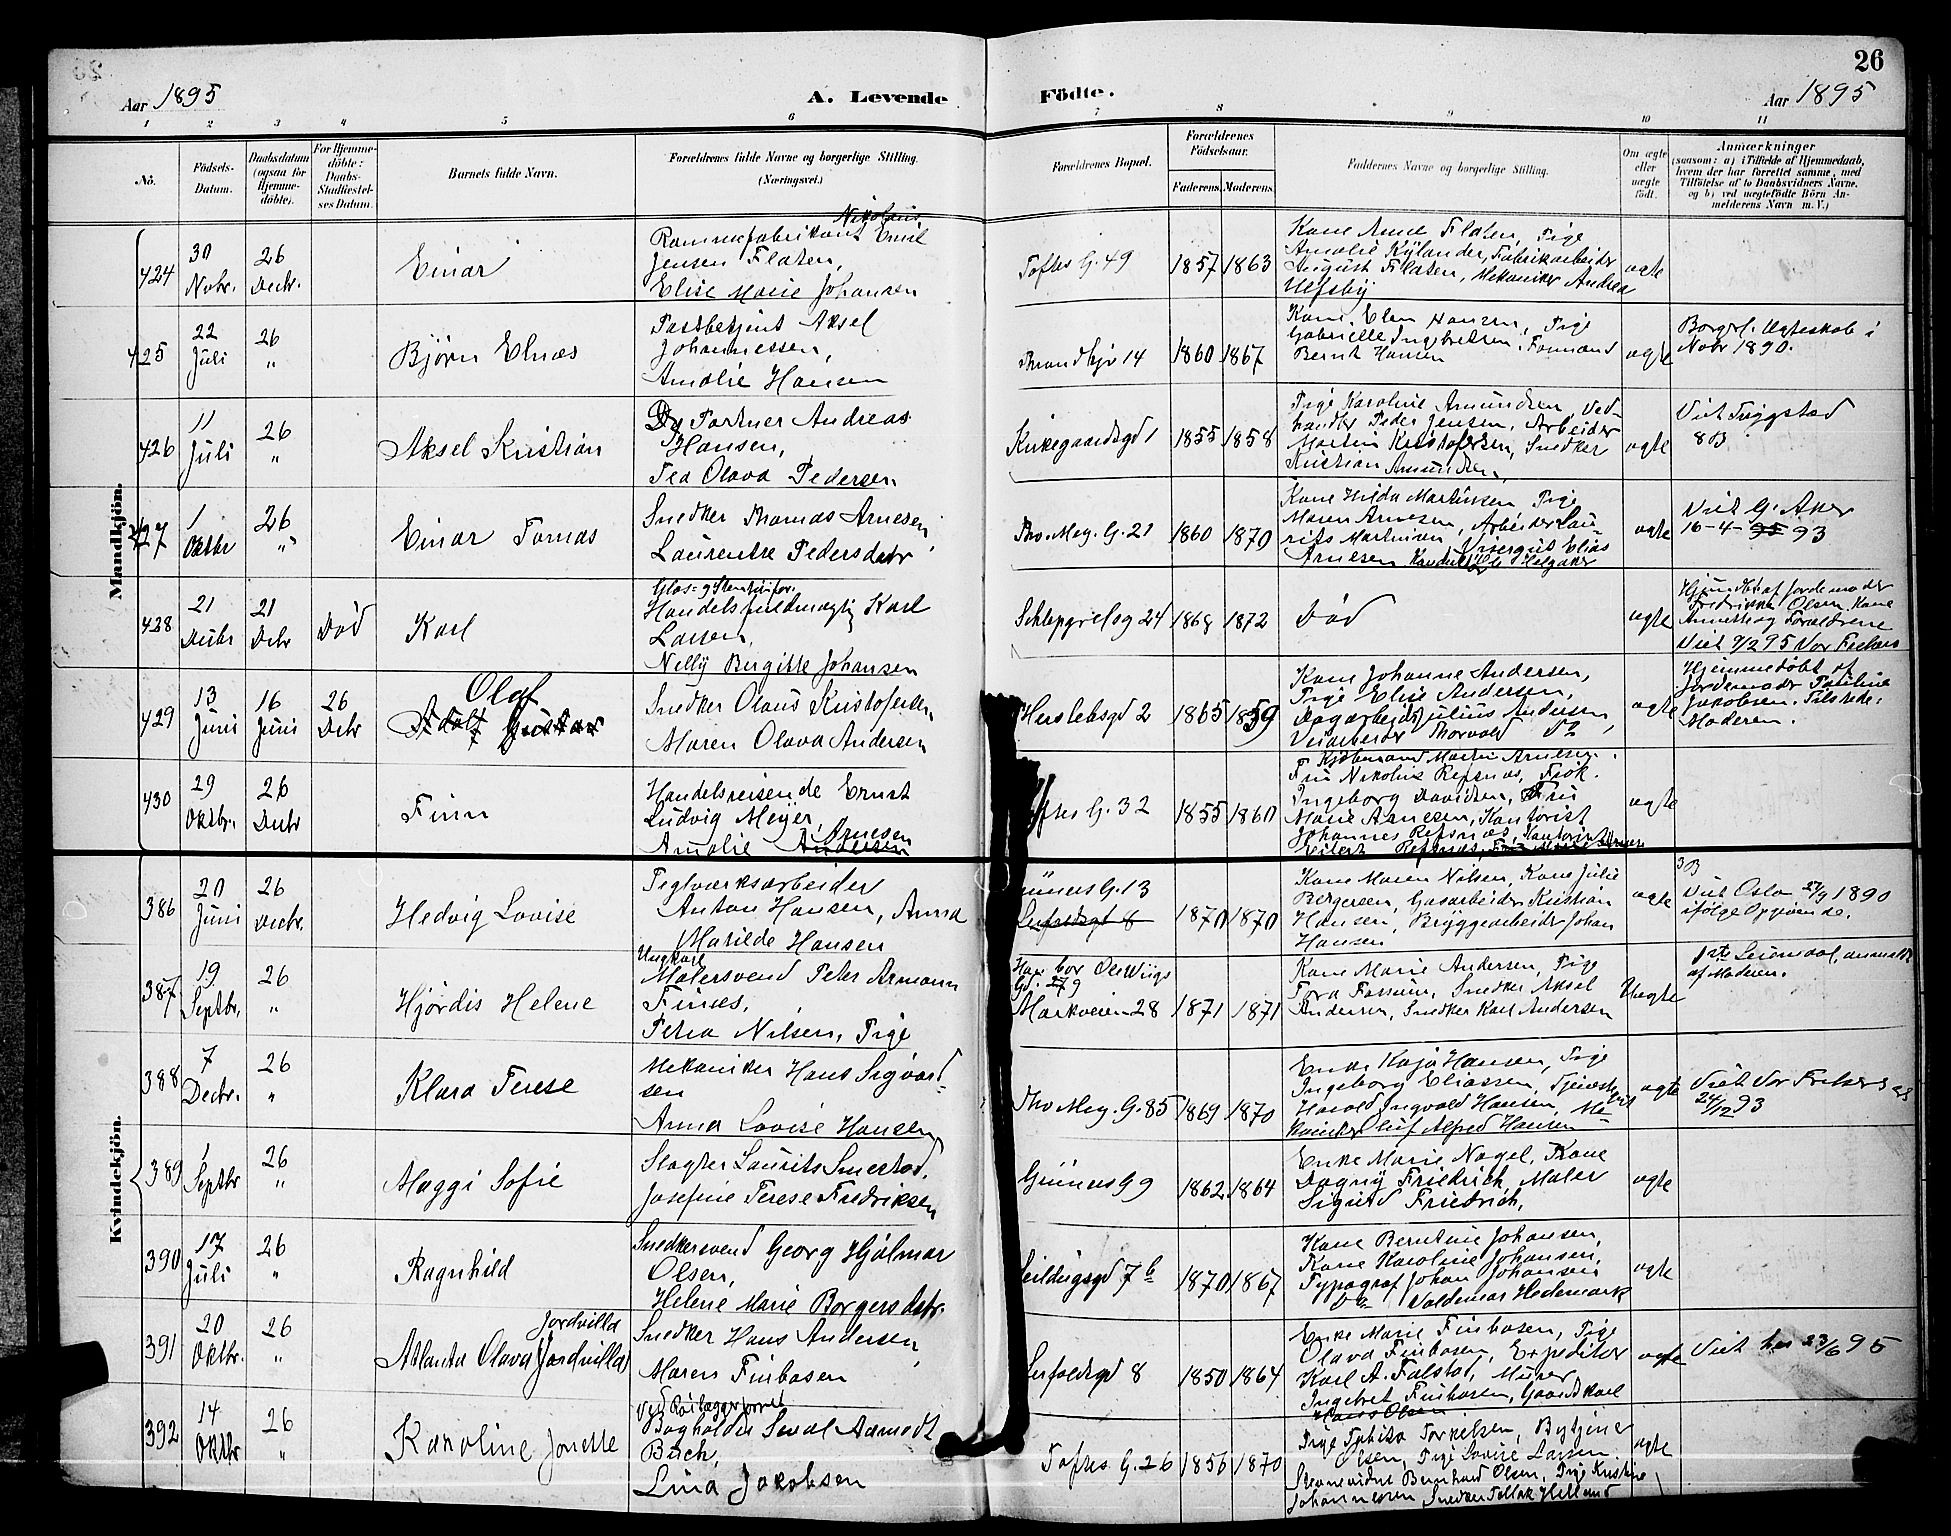 26
Aar 1895
A. Levende
Födte.
Aar 1895
1 2 3 4 5 6 7 8 9 10 11
No.
Födsels-
Datum.
Daabsdatum
(ogsaa for
Hjemme-
döbte).
For Hjemme-
döbte:
Daabs-
Stadfæstel-
ses Datum.
Barnets fulde Navn.
Forældrenes fulde Navne og borgerlige Stilling.
(Næringsvei.)
Forældrenes Bopæl.
Forældrenes
Födselsaar.
Faderens.
Moderens.
Faddernes Navne og borgerlige Stilling.
Om ægte
eller
uægte
födt.
Anmærkninger
(saasom: a) i Tilfælde af Hjemmedaab,
hvem der har forrettet samme, med
Tilföielse af to Daabsvidners Navne,
og b) ved uægtefödte Börn An-
melderens Navn m. V.)
Mandkjön.
424
30
Novbr.
26
Decbr.
Einar
Nikolaus
Rammefabrikant Emil
Jensen Flaten,
Elise Marie Johansen
Toftes G. 49
1857
1863
Kone Anne Flaten, Pige
Amalie Kylander, Fabrikarbeider
August Flaten, Mekaniker Andreas
Ulfsby
ægte
425
22
Juli
26
"
Bjørn Elnæs
Postbetjent Aksel
Johannessen,
Amalie Hansen
14
1860
1867
Kone Elen Hansen, Pige
Gabrielle Ingebretsen, Formand
Bernt Hansen
ægte
Borgerl. Ægteskab i
Novbr 1890.
426
11
Juli
26
"
Aksel Kristian
Portner Andreas
Hansen,
Tea Olava Pedersen
Kirkegaardsgd 1
1855
1858
Pige Karoline Amundsen, Ved-
handler Peder Jensen, Arbeider
Martin Kristofersen, Snedker
Kristian Amundsen,
ægte
Viet Trygstad
83
427
1
Oktbr
26
"
Einar Tomas
Snedker Thomas Arnesen,
Laurentse Pedersdatr
Thv. Mey. G. 21
1860
1870
Kone Hilda Martinsen, Pige
Maren Arnesen, Arbeider Lau-
rits Martinsen, Visergut Elias
Arnesen
ægte
Viet G. Aker
16-4-95 93
428
21
Decbr
21
Decbr
Død
Karl
Handelsfuldmægtig Karl
Larsen,
Nelly Birgitte Johansen
Schleppegrelsg 24
1868
1872
Død
ægte
Hjemmedbt af Jordemoder
Fredrikke Olsen, Kone
Annette og Forældrene
Viet 7/2 95 Vor Frelsers
429
13
Juni
16
Juni
26
Decbr
Olaf
Adolf Gustav
Snedker Olaus Kristofersen,
Maren Olava Andersen
Herslebsgd 2
1865
1859
Kone Johanne Andersen,
Pige Elise Andersen,
Dagarbeider Julius Andersen,
Veiarbeider Thorvald Do
ægte
Hjemmedøbt af
Jordemoder Pauline
Jakobsen. Tilstede:
Moderen.
430
29
Oktbr.
26
Decbr
Finn
Handelsreisende Ernst
Ludvig Meyer,
Arnesen
Amalie Andersen
Toftes G. 32
1855
1860
Kjøbmand Martin Arnesen.
Fru Nikoline Refsnæs, Frøk.
Ingeborg Davidsen, Fru
Marie Arnesen, Kontorist
Johannes Refsnæs, Kontorist
Eilert Refsnæs,
ægte
Kvindekjön.
386
20
Juni
26
Decbr.
Hedvig Lovise
Teglværksarbeider
Anton Hansen, Anna
Matilde Hansen
Grüners G. 13
Leirfaldsgt 8
1870
1870
Kone Maren Nilsen, Kone Julie
Bergersen, Gasarbeider Kristian
Hansen, Bryggearbeider Johan
Hansen
ægte
3B
Viet Oslo 27/9 1890
ifølge Opgivende.
387
19
Septbr.
26
"
Hjørdis Helene
Ungkarl
Malersvend Peter Armann
Finæs,
Petra Nilsen, Pige
Han bor Ole Wiigs
Gd.
Markveien 28
1871
1871
Kone Marie Andersen, Pige
Tora Fossum, Snedker Aksel
Andersen, Snedker Karl Andersen
Uægte
1ste Leiermaal, anmeldt
af Moderen.
388
7
Decbr.
26
"
Klara Terese
Mekaniker Hans Sigvard-
sen
Anna Lovise Hansen
Thv. Mey. G. 85
1869
1870
Enke Kaja Hansen, Pige
Ingeborg Eliassen, Tjenestepige
Harald Ingvald Hansen, Me-
kaniker Oluf Alfred Hansen
ægte
Viet Vor Frelsers
24/12 93
389
1
Septbr
26
"
Maggi Sofie
Slagter Laurits Smestad,
Josefine Terese Fredriksen
Grünersg 9
1862
1864
Enke Marie Nagel, Kone
Dagny Friedrich, Maler
Sigurd Friedrich,
ægte
390
17
Juli
26
"
Ragnhild
Snedkersvend Georg Hjalmar
Olsen,
Helene Marie Borgersdatr.
Seildugsgd 7b
1870
1867
Kone Berntine Johansen,
Kone Karoline Johansen,
Typograf Johan Johansen
Do Valdemar Hedemark
ægte
391
20
Oktbr.
26
"
Jordvilla
Atlanta Olava (Jordvilla)
Snedker Hans Andersen,
Maren Finbosen
Leirfaldsgd 8
1850
1864
Enke Marie Finbosen, Pige
Olava Finbosen, Expeditør
Karl A. Falstad, Murer
Ingebret Finbosen, Gaardskarl
Hans Olsen
ægte
Viet her 23/6 95
392
14
Oktbr
26
"
Karoline Jonette
Bogholder Seval Aamodt
Buch,
Lina Jakobsen
Toftes G. 26
1856
1870
Pige Tabita Torkelsen, Bytjener
Olsen, Pige Lovise Larsen
Bernhard Olsen, Pige Kristine
Johannesen, Snedker Tollak Helland
ægte